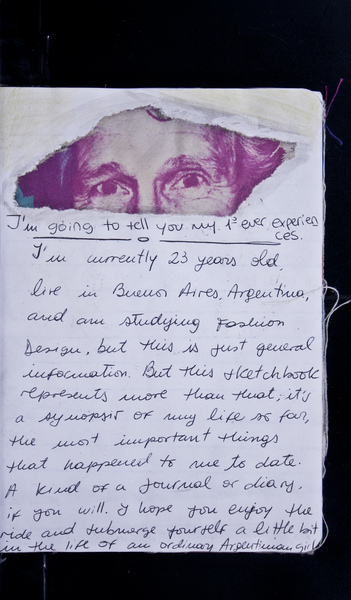 I'm going to tell you my 1º ever experien
ces.
I'm currently 23 years old,
live in Buenos Aires, Argentina,
and am studying Fashion
Design, but this is just general
information. But this sketchbook
represents more than that; it's
a synopsis of my life so far,
the most important things
that happened to me to date.
A kind of a journal or diary,
if you will. I hope you enjoy the
ride and submerge yourself a little bit
in the life of an ordinary Argentinian girl